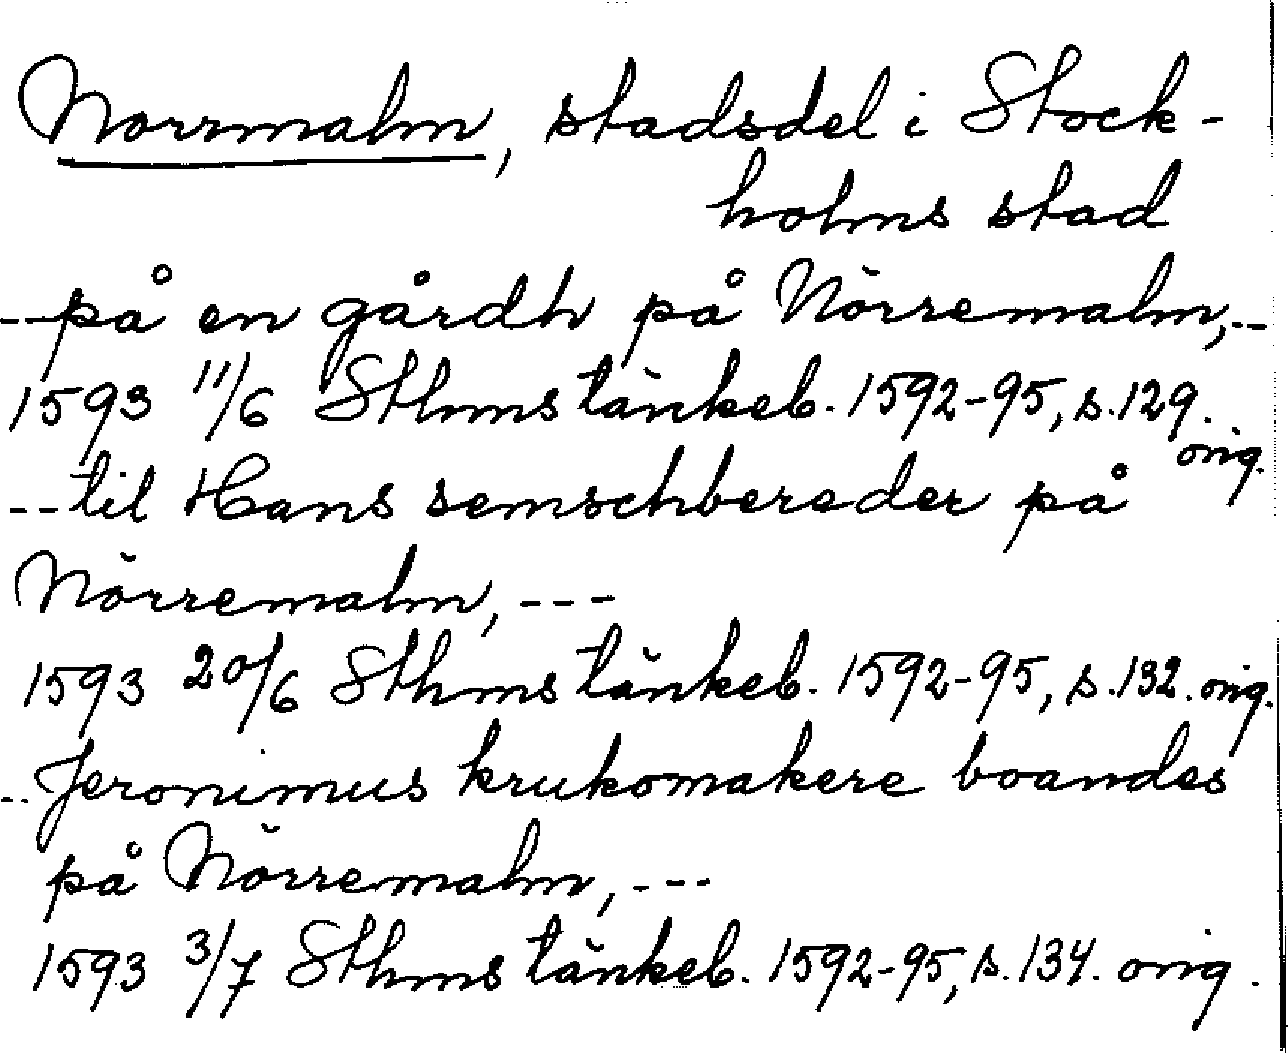 Norrmalm, stadsdel i Stock-
holms stad
-- på en gårdh på Nörremalm, --
1593 11/6 Sthms tänkeb. 1592-95, s. 129. orig.
-- til Hans semschbereder på
Nörremalm, ---
1593 20/6 Sthms tänkeb. 1592-95, s. 132. orig.
-- Jeronimus krukomakere boandes
på Nörremalm, ---
1593 3/7 Sthms tänkeb. 1592-95, s. 134. orig.